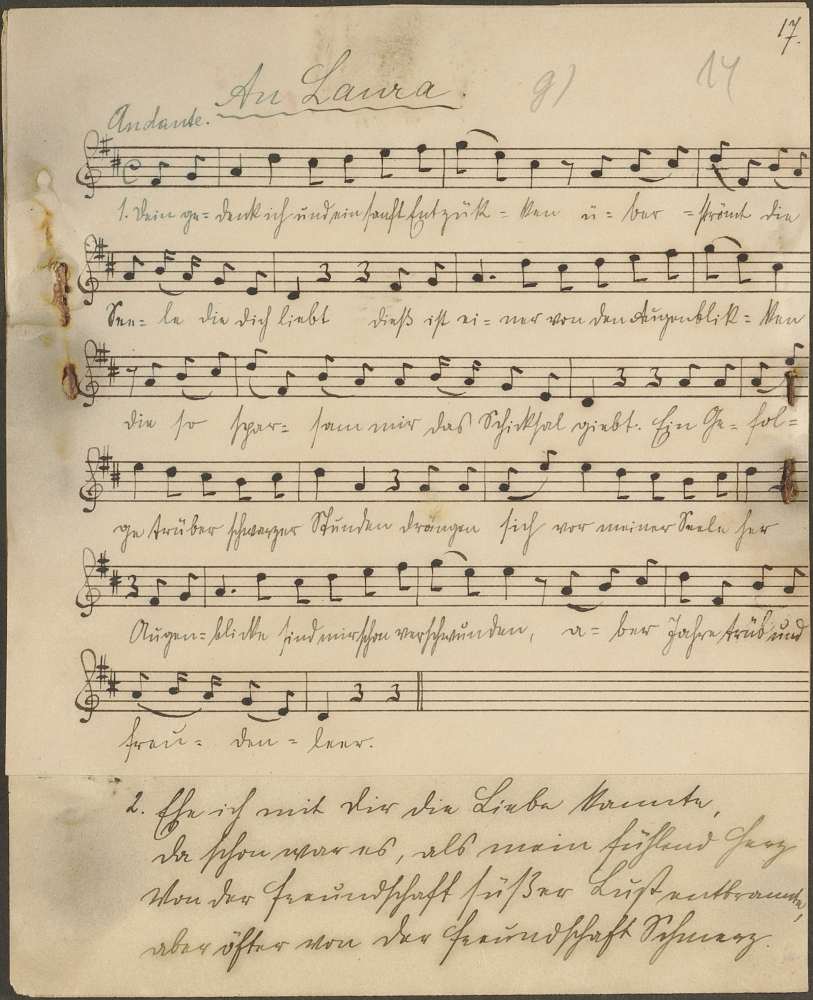 17.
An Laura.
g)
14
Andante.
1. Dein ge= denk ich und ein sanft Entzük= ken ü= ber =strömt die
See= le die dich liebt dieß ist ei= ner von den Augenblik= ken
die so spar= sam mir das Schicksal giebt. Ein Ge= fol=
ge trüber schwarzer Stunden drängen sich vor meiner Seele her
Augen= blicke sind mir schon verschwunden, a= ber Jahre trüb und
freu= den= leer.
2. Ehe ich mit dir die Liebe kannte,
da schon war es, als mein fühlend Herz
Von der Freundschaft süßer Lust entbrannte,
aber öfter von der Freundschaft Schmerz.